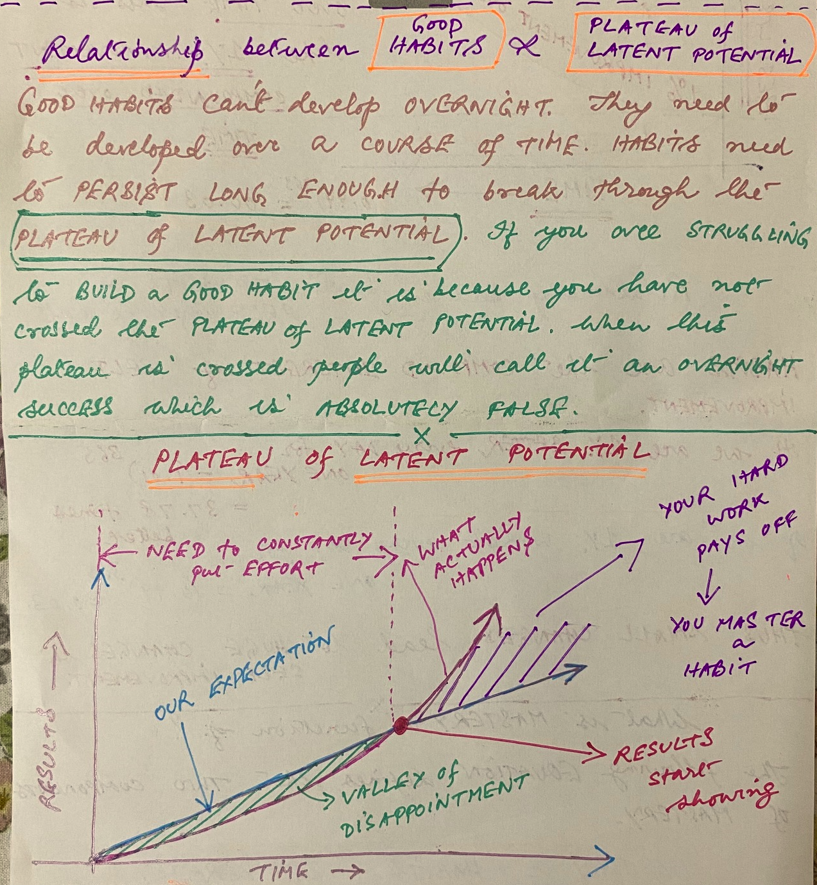 Relationship between GOOD HABITS & PLATEAU of LATENT POTENTIAL
GOOD HABITS can't develop OVERNIGHT. They need to
be developed over a COURSE of TIME. HABITS need
to PERSIST LONG ENOUGH to break through the
PLATEAU of LATENT POTENTIAL. If you are STRUGGLING
to BUILD a GOOD HABIT it is because you have not
crossed the PLATEAU of LATENT POTENTIAL. When this
plateau is crossed people will call it an OVERNIGHT
success which is ABSOLUTELY FALSE.
x
PLATEAU of LATENT POTENTIAL
NEED to CONSTANTLY
put EFFORT
WHAT
ACTUALLY
HAPPENS
YOUR HARD
WORK
PAYS OFF
YOU MASTER
a
HABIT
OUR EXPECTATION
RESULTS
VALLEY of
DISAPPOINTMENT
RESULTS
start
showing
TIME